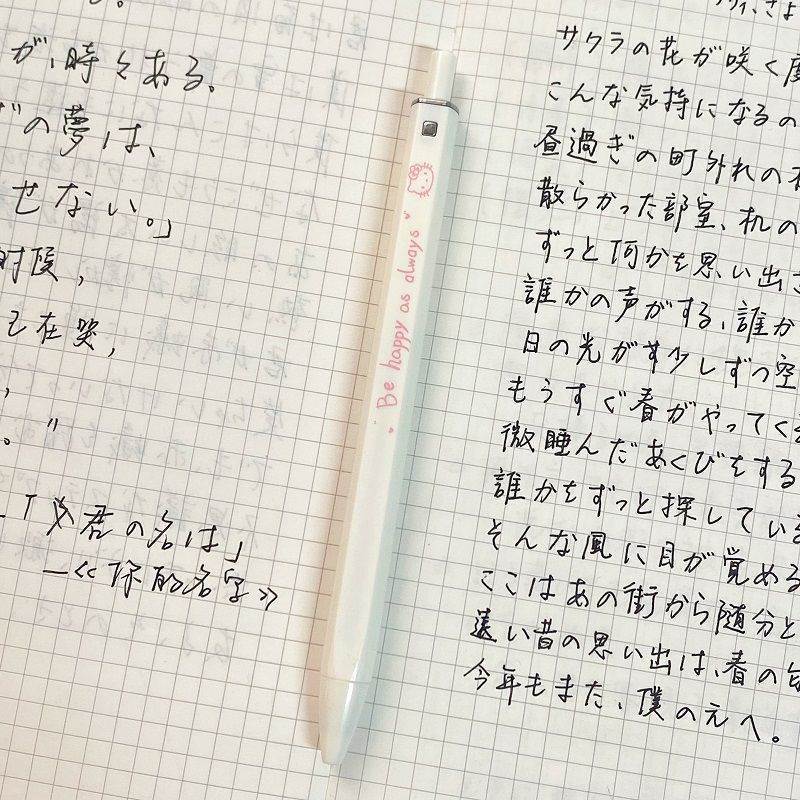 が、時々ある、
の夢は、
せない。」
时候，
在哭，
，
。"
「君の名は」
—《你的名字》
Be happy as always
サクラの花が咲く度
こんな気持になるの
昼過ぎの町外れの
散らかった部屋、机の
ずっと何かを思い出さ
誰かの声がする、誰か
日の光が少しずつ空
もうすぐ春がやってく
微睡んだあくびをする
誰かをずっと探してい
そんな風に目が覚める
ここはあの街から随分と
遠い昔の思い出は、春の
今年もまた、僕のえへ。